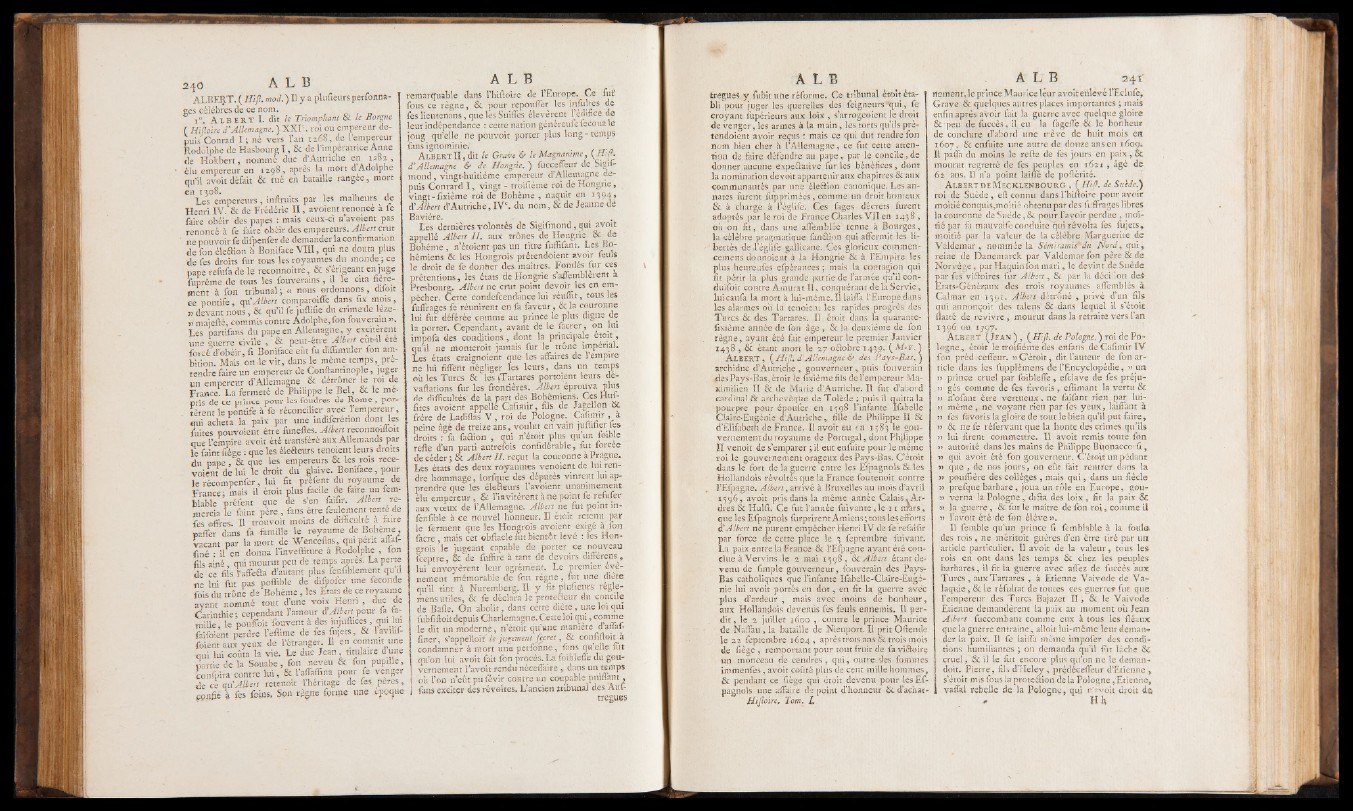 240 A L B
ALBERT. ( Hist. mod. ) Il y a plusieurs personna-
ges célèbres de ce nom.
1°. ALBERT I. dit le Triomphant & le Borgne
( Histoire d'Allemagne. ) XXIe. roi ou empereur de-
puis Conrad I ; né vers l'an 1268, de l'empereur
Rodolphe de Hasbourg I, & de l'impératrice Anne
de Hokbert, nommé duc d'Autriche en 1282,
élu empereur en 1298, après la mort d'Adolphe
qu'il avoit défait & tué en bataille rangée, mort
en 1308.
Les empereurs, instruits par les malheurs de
Henri IV. & de Fréderic II, avoient renoncé à se
faire obéir des papes : mais ceux-ci n'avoient pas
renoncé à se faire obéir des empereurs. Albert crut
ne pouvoir se dispenser de demander la confirmation
de son élection à Boniface VIII, qui ne douta plus
de ses droits sur tous les royaumes du monde ; ce
pape refusa de le reconnoître, & s'érigeant en juge
suprême de tous les souverains, il le cita fière-
ment à son tribunal ; « nous ordonnons, disoit
ce pontife, qu'Albert comparoisse dans six mois,
» devant nous, & qu'il se justifie du crime de lèze-
» majesté, commis contre Adolphe, son souverain ».
Les partisans du pape en Allemagne, y excitèrent
une guerre civile, & peut-être Albert eût-il été
forcé d'obéir, si Boniface eût su dissimuler son am-
bition. Mais on le vit, dans le même temps, pré-
tendre faire un empereur de Constantinople, juger
un empereur d'Allemagne & détrôner le roi de
France. La fermeté de Philippe le Bel, & le mé-
pris de ce prince pour les foudres de Rome, por-
tèrent le pontife à se réconcilier avec l'empereur,
qui acheta la paix par une indiscrétion dont les
suites pouvoient être funestes. Albert reconnoissoit
que l'empire avoit été transféré aux Allemands par
le saint siège : que les électeurs tenoient leurs droits
du pape, & que les empereurs & les rois rece-
voient de lui le droit du glaive. Boniface, pour
le récompenser, lui fit présent du royaume de
France ; mais il étoit plus facile de faire un sem-
blable présent que de s'en saisir. Albert re-
mercia le saint père, sans être seulement tenté de
ses offres. Il trouvoit moins de difficulté à faire
passer dans sa famille le royaume de Bohême,
vacant par la mort de Wenceslas, qui périt assas-
siné : il en donna l'investiture à Rodolphe, son
fils ainé, qui mourut peu de temps après. La perte
de ce fils l'affecta d'autant plus sensiblement qu'il
ne lui fut pas possible de disposer une seconde
fois du trône de Bohême, les Etats de ce royaume
ayant nommé tout d'une voix Henri, duc de
Carinthie ; cependant l'amour d'Albert pour sa fa-
mille, le poussoit souvent à des injustices, qui lui
faisoient perdre l'estime de ses sujets, & l'avilis-
soient aux yeux de l'étranger. Il en commit une
qui lui coûta la vie. Le duc Jean, titulaire d'une
partie de la Souabe, son neveu & son pupille,
conspira contre lui, & l'assassina pour se venger
de ce qu'Albert retenoit l'héritage de ses pères,
confié à ses soins. Son règne forme une époque
A L B
remarquable dans l'histoire de l'Europe. Ce fut
sous ce règne, & pour repousser les insultes de
ses lieutenans, que les Suisses élevèrent l'édifice de
leur indépendance : cette nation généreuse secoua le
joug qu'elle ne pouvoit porter plus long-temps
sans ignominie.
ALBERT II, dit le Grave & le Magnanime, ( Hist.
d'Allemagne & de Hongrie. ) successeur de Sigis-
mond, vingt-huitième empereur d'Allemagne de-
puis Conrard I, vingt-troisième roi de Hongrie,
vingt-sixième roi de Bohême, naquit en 1394,
d'Albert d'Autriche, IVe. du nom, & de Jeanne de
Bavière.
Les dernières volontés de Sigismond, qui avoit
appellé Albert II. aux trônes de Hongrie & de
Bohême, n'étoient pas un titre suffisant. Les Bo-
hèmiens & les Hongrois prétendoient avoir seuls
le droit de se donner des maîtres. Fondés sur ces
prétentions, les états de Hongrie s'assemblèrent à
Presbourg. Albert ne crut point devoir les en em-
pêcher. Cette condescendance lui réussit, tous les
suffrages se réunirent en sa faveur, & la couronne
lui fut déférée comme au prince le plus digne de
la porter. Cependant, avant de le sacrer, on lui
imposa des conditions, dont la principale étoit,
qu'il ne monteroit jamais sur le trône impérial.
Les états craignoient que les affaires de l'empire
ne lui fissent négliger les leurs, dans un temps
où les Turcs & les Tartares portoient leurs dé-
vastations sur les frontières. Albert éprouva plus
de difficultés de la part des Bohèmiens. Ces Hus-
sites avoient appellé Casimir, fils de Jagellon &
frère de Ladislas V, roi de Pologne. Casimir, à
peine âgé de treize ans, voulut en vain justifier ses
droits : sa faction, qui n'étoit plus qu'un foible
reste d'un parti autrefois considérable, fut forcée
de céder ; & Albert II. reçut la couronne à Prague.
Les états des deux royaumes venoient de lui ren-
dre hommage, lorsque des députés vinrent lui ap-
prendre que les électeurs l'avoient unanimement
élu empereur, & l'invitèrent à ne point se refuser
aux vœux de l'Allemagne. Albert ne fut point in-
sensible à ce nouvel honneur. Il étoit retenu par
le serment que les Hongrois avoient exigé à son
sacre, mais cet obstacle fut bientôt levé : les Hon-
grois le jugeant capable de porter ce nouveau
sceptre, & de suffire à tant de devoirs différens,
lui envoyèrent leur agrément. Le premier évé-
nement mémorable de son règne, fut une diète
qu'il tint à Nuremberg. Il y fit plusieurs régle-
mens utiles, & se déclara le protecteur du concile
de Basle. On abolit, dans cette diète, une loi qui
subsistoit depuis Charlemagne. Cette loi qui, comme
le dit un moderne, n'étoit qu'une manière d'assas-
siner, s'appelloit le jugement secret, & consistoit à
condamner à mort une personne, sans qu'elle sût
qu'on lui avoit fait son procès. La foiblesse du gou-
vernement l'avoit rendu nécessaire, dans un temps
où l'on n'eût pu sévir contre un coupable puissant,
sans exciter des révoltes. L'ancien tribunal des Aus-
tregues
A L B
tregues y subit une réforme. Ce tribunal étoit éta-
bli pour juger les querelles des seigneurs qui, se
croyant supérieurs aux loix, s'arrogeoient le droit
de venger, les armes à la main, les torts qu'ils pré-
tendoient avoir reçus : mais ce qui dut rendre son
nom bien cher à l'Allemagne, ce fut cette atten-
tion de faire défendre au pape, par le concile, de
donner aucune expectative sur les bénéfices, dont
la nomination devoit appartenir aux chapitres & aux
communautés par une élection canonique. Les an-
nates furent supprimées, comme un droit honteux
& à charge à l'église. Ces sages décrets furent
adoptés par le roi de France Charles VII en 1438,
où on fit, dans une assemblée tenue à Bourges,
la célèbre pragmatique sanction qui affermit les li-
bertés de l'église gallicane. Ces glorieux commen-
cemens donnoient à la Hongrie & à l'Empire les
plus heureuses espérances ; mais la contagion qui
fit périr la plus grande partie de l'armée qu'il con-
duisoit contre Amurat II, conquérant de la Servie,
lui causa la mort à lui-même. Il laissa l'Europe dans
les alarmes où la tenoient les rapides progrès des
Turcs & des Tartares. Il étoit dans la quarante-
sixième année de son âge, & la deuxième de son
règne, ayant été fait empereur le premier Janvier
1438, & étant mort le 27 octobre 1439. ( M-Y. )
ALBERT, ( Hist. d'Allemagne & des Pays-Bas, )
archiduc d'Autriche, gouverneur, puis souverain
des Pays-Bas, étoit le sixième fils de l'empereur Ma-
ximilien II & de Marie d'Autriche. Il fut d'abord
cardinal & archevêque de Tolède ; puis il quitta la
pourpre pour épouser en 1598 l'infante Isabelle
Claire-Eugénie d'Autriche, fille de Philippe II &
d'Elisabeth de France. Il avoit eu en 1583 le gou-
vernement du royaume de Portugal, dont Philippe
II venoit de s'emparer ; il eut ensuite pour le même
roi le gouvernement orageux des Pays-Bas. C'étoit
dans le fort de la guerre entre les Espagnols & les
Hollandois révoltés que la France soutenoit contre
l'Espagne. Albert, arrivé à Bruxelles au mois d'avril
1596, avoit pris dans la même année Calais, Ar-
dres & Hulst. Ce fut l'année suivante, le 11 mars,
que les Espagnols surprirent Amiens ; tous les efforts
d'Albert ne purent empêcher Henri IV de se resaisir
par force de cette place le 3 septembre suivant.
La paix entre la France & l'Espagne ayant été con-
clue à Vervins le 2 mai 1598, & Albert étant de-
venu de simple gouverneur, souverain des Pays-
Bas catholiques que l'infante Isabelle-Claire-Eugé-
nie lui avoit portés en dot, en fit la guerre avec
plus d'ardeur, mais avec moins de bonheur,
aux Hollandois devenus ses seuls ennemis. Il per-
dit, le 2 juillet 1600, contre le prince Maurice
de Nassau, la bataille de Nieuport. Il prit Ostende
le 22 septembre 1604, après trois ans & trois mois
de siège, remportant pour tout fruit de sa victoire
un monceau de cendres, qui, outre des sommes
immenses, avoit coûté plus de cent mille hommes,
& pendant ce siège qui étoit devenu pour les Es-
pagnols une affaire de point d'honneur & d'achar-
Histoire. Tom. I.
A L B 241
nement, le prince Maurice leur avoit enlevé l'Ecluse,
Grave & quelques autres places importantes ; mais
enfin après avoir fait la guerre avec quelque gloire
& peu de succès, il eut la sagesse & le bonheur
de conclure d'abord une trêve de huit mois en
1607, & ensuite une autre de douze ans en 1609.
Il passa du moins le reste de ses jours en paix, &
mourut regretté de ses peuples en 1621, âgé de
62 ans. Il n'a point laissé de postérité.
ALBERT DE MECKLENBOURG, ( Hist. de Suède.)
roi de Suède, est connu dans l'histoire pour avoir
moitié conquis, moitié obtenu par des suffrages libres
la couronne de Suède, & pour l'avoir perdue, moi-
tié par sa mauvaise conduite qui révolta ses sujets,
moitié par la valeur de la célèbre Marguerite de
Valdemar, nommée la Sémiramis du Nord, qui,
reine de Danemarck par Valdemar son père & de
Norvége, par Haquin son mari, le devint de Suède
par ses victoires sur Albert, & par la décision des
Etats-Généraux des trois royaumes assemblés à
Calmar en 1391. Albert détrôné, privé d'un fils
qui annonçoit des talens & dans lequel il s'étoit
flatté de revivre, mourut dans la retraite vers l'an
1396 ou 1397.
ALBERT (JEAN), ( Hist. de Pologne. ) roi de Po-
logne, étoit le troisième des enfans de Casimir IV
son prédécesseur. « C'étoit, dit l'auteur de son ar-
ticle dans les supplémens de l'Encyclopédie, » un
» prince cruel par foiblesse, esclave de ses préju-
» gés comme de ses favoris, estimant la vertu &
» n'osant être vertueux, ne faisant rien par lui-
» même, ne voyant rien par ses yeux, laissant à
» ses favoris la gloire de tout le bien qu'il put faire,
» & ne se réservant que la honte des crimes qu'ils
» lui firent commettre. Il avoit remis toute son
» autorité dans les mains de Philippe Buonacorsi,
» qui avoit été son gouverneur. C'étoit un pédant
» que, de nos jours, on eût fait rentrer dans la
» poussière des collèges, mais qui, dans un siècle
» presque barbare, joua un rôle en Europe, gou-
» verna la Pologne, dicta des loix, fit la paix &
» la guerre, & fut le maître de son roi, comme il
» l'avoit été de son élève ».
Il semble qu'un prince si semblable à la foule
des rois, ne méritoit guères d'en être tiré par un
article particulier. Il avoit de la valeur, tous les
rois en ont dans les temps & chez les peuples
barbares, il fit la guerre avec assez de succès aux
Turcs, aux Tartares, à Etienne Vaivode de Va-
laquie, & le résultat de toutes ces guerres fut que
l'empereur des Turcs Bajazet II, & le Vaivode
Etienne demandèrent la paix au moment où Jean
Albert succombant comme eux à tous les fléaux
que la guerre entraîne, alloit lui-même leur deman-
der la paix. Il se laissa même imposer des condi-
tions humiliantes ; on demanda qu'il fût lâche &
cruel, & il le fut encore plus qu'on ne le deman-
doit. Pierre, fils d'Heley, prédécesseur d'Etienne,
s'étoit mis sous la protection de la Pologne, Etienne,
vassal rebelle de la Pologne, qui n'avoit droit de
H h